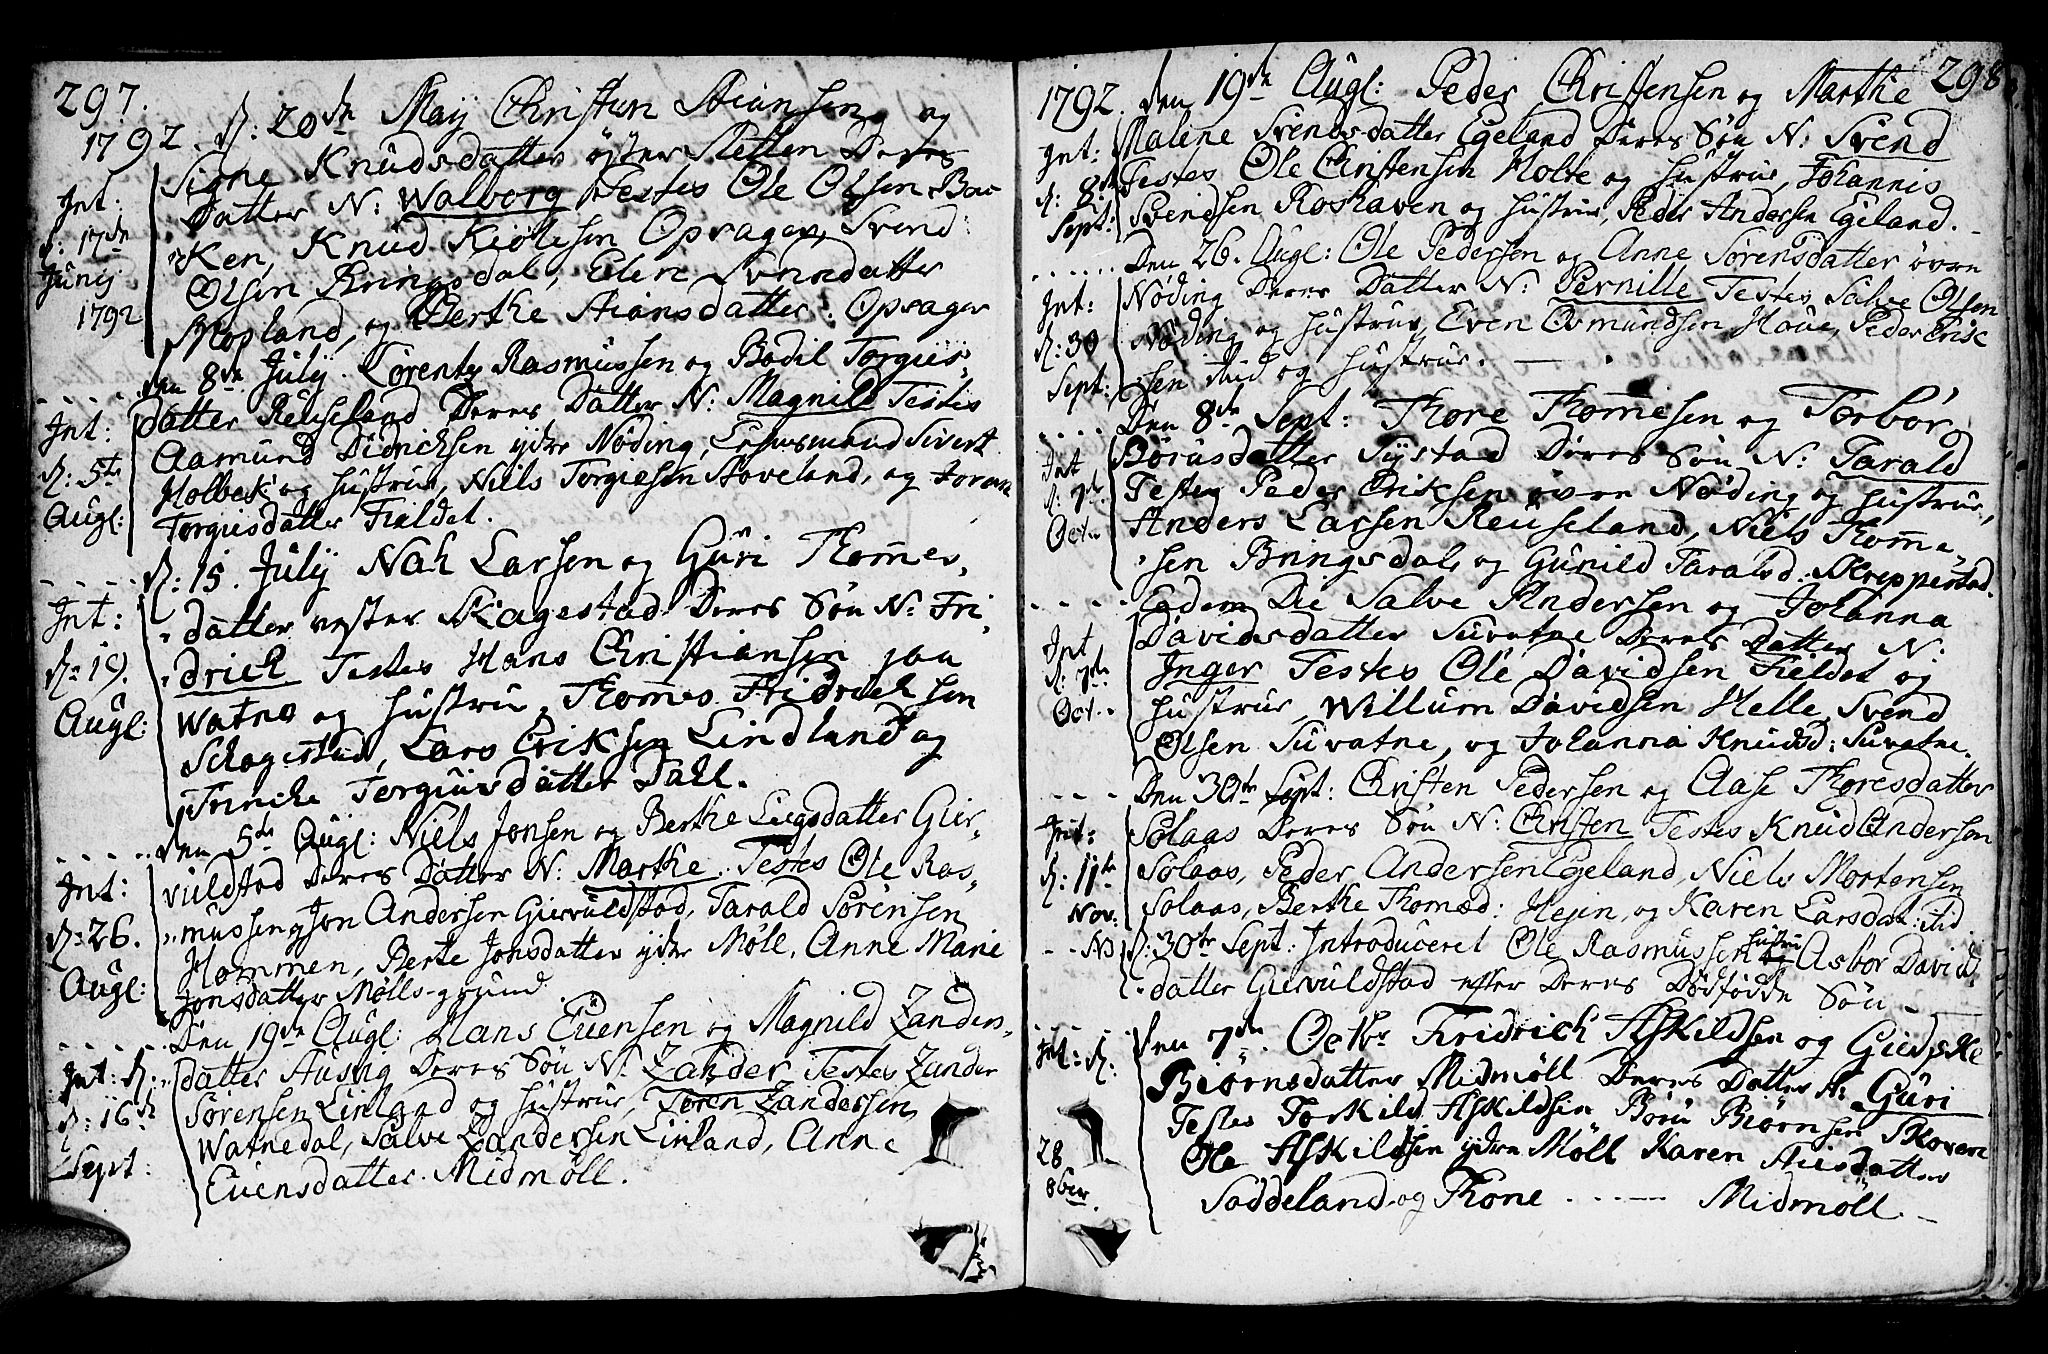 297.
1792. d: 20de Maij Christen Aiansen og
Signe Knudsdatter öfter Sletten Deres
Int: Datter N: Walborg Testes Ole Olsen Bac
d: 17de Ken, Knud Kiölesen Opsager, Svend
Junij Olsen Bringsdal, Elen Svendatter
1792 Mopland, og Berthe Aiansdatter: Opsager
den 8de Julij. Lorentz Rasmussen og Bodil Torgius,
Int: datter Reuseland Deres Datter N: Magnild Testes
Aamund Didricksen ydre Nöding, Sivert
d: 5te Holbek og hustrue, Niels Torgiesen Stoveland, og Joran
Augl: Torgiusdatter Fieldet.
d: 15. Julij Nah Larsen og Guri Thomes,
Int: datter vester Skagestad Deres Sön N: Fri,
d: 19. drich Testes Hans Christiansen paa
Augl: Watne og hustrue, Thomes Fridrich sen
Schagestad, Lars Eriksen Lindland og
Trinche Torgiusdatter Dahl.
den 5te Augl: Niels Jonsen og Berthe Lugsdatter Gier,
Int: vuldstad Deres Datter N: Marthe. Testes Ole Ras,
d: 26. mussen Jon Andersen Giervuldstad, Tarald Sörensen
Hommen, Berte Jonsdatter ydre Möll, Anne Marie
Augl: Jonsdatter Mölls-grund.
Den 19de Augl: Hans Evensen og Magnild Zanders,
Int: d: datter Ausvig Deres Sön N: Zander Testes Zander
d: 16de Sörensen Linland og hustrue, Sören Zandersen
Watnedal, Salve Zandersen Linland, Anne
Sept: Euensdatter Midmöll.
298
1792. den 19de Augl: Peder Christensen og Marthe
Int: Malene Svendsdatter Egeland Deres Sön N: Svend
d: 8de Testes Ole Christensen Holte og hustrue, Johannis
Sept: Svendsen Roshaven og hustrue, Peder Andersen Egeland.
Den 26. Augl: Ole Pedersen og Anne Sörensdatter övre
Int: Nöding Deres Datter N: Pernille Testes Salve Olsen
d: 30 Nöding og hustrue, Even Osmundsen Haue, Peder Erik
Sept: sen Aid og hustrue.
Den 8de Sept: Thore Thomesen og Torbor
Int Börusdatter Systad Deres Sön N: Tarald
d: 7de Testes Peder Eriksen övre Nöding og hustrue,
Oct. Anders Larsen Reuseland, Niels Thome,
sen Bringsdal, og Gunild Taralsd: Skreppestad.
Eodem Die Salve Andersen og Johanna
Int Davidsdatter Suvatne Deres Datter N:
d: 7de Inger Testes Ole Davidsen Fieldet og
Oct. hustrue, Willum Davidsen Helle, Svend
Olsen Suvatne, og Johanna Knudsd: Suvatne.
Den 30te Sept: Christen Pedersen og Aase Thoresdatter
Int: Solaas Deres Sön N: Christen Testes Knud Andersen
d: 11te Solaas, Peder Andersen Egeland, Niels Mortensen
Nov: Solaas, Berthe Thomesd: Hejen, og Karen Larsdat: Aid.
N d: 30te Sept: Introduceret Ole Rasmussen hustru Asbor David,
datter Giervuldstad efter Deres Dödfödde Sön
den 7de Octbr Fridrich Askildsen og Giedske
Int: d: Biörnsdatter Midmöll Deres Datter N: Guri
Testes Torkild Askildsen Böru Biörnsen Skovere
28 Ole Askildsen ydre Möll Karen Aiesdatter
8ber. Soddeland og Thone . . . — Midmöll. -